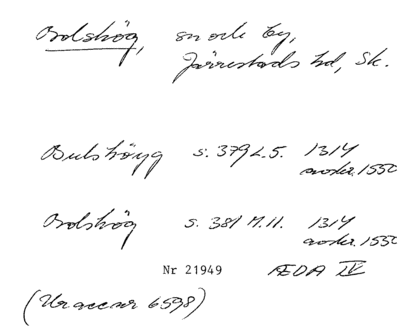 Bolshög, sn och by,
Järrestads hd, Sk.
Bulshöyg s. 379 L. 5. 1314
avskr. 1550
Bolshög s. 381 M. 11. 1314
avskr. 1550
Nr 21949 ÆDA IV
(Ur accnr 6598)